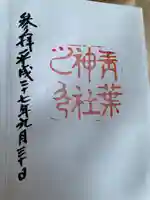 青葉
神社
参拝平成二十七年九月三十日